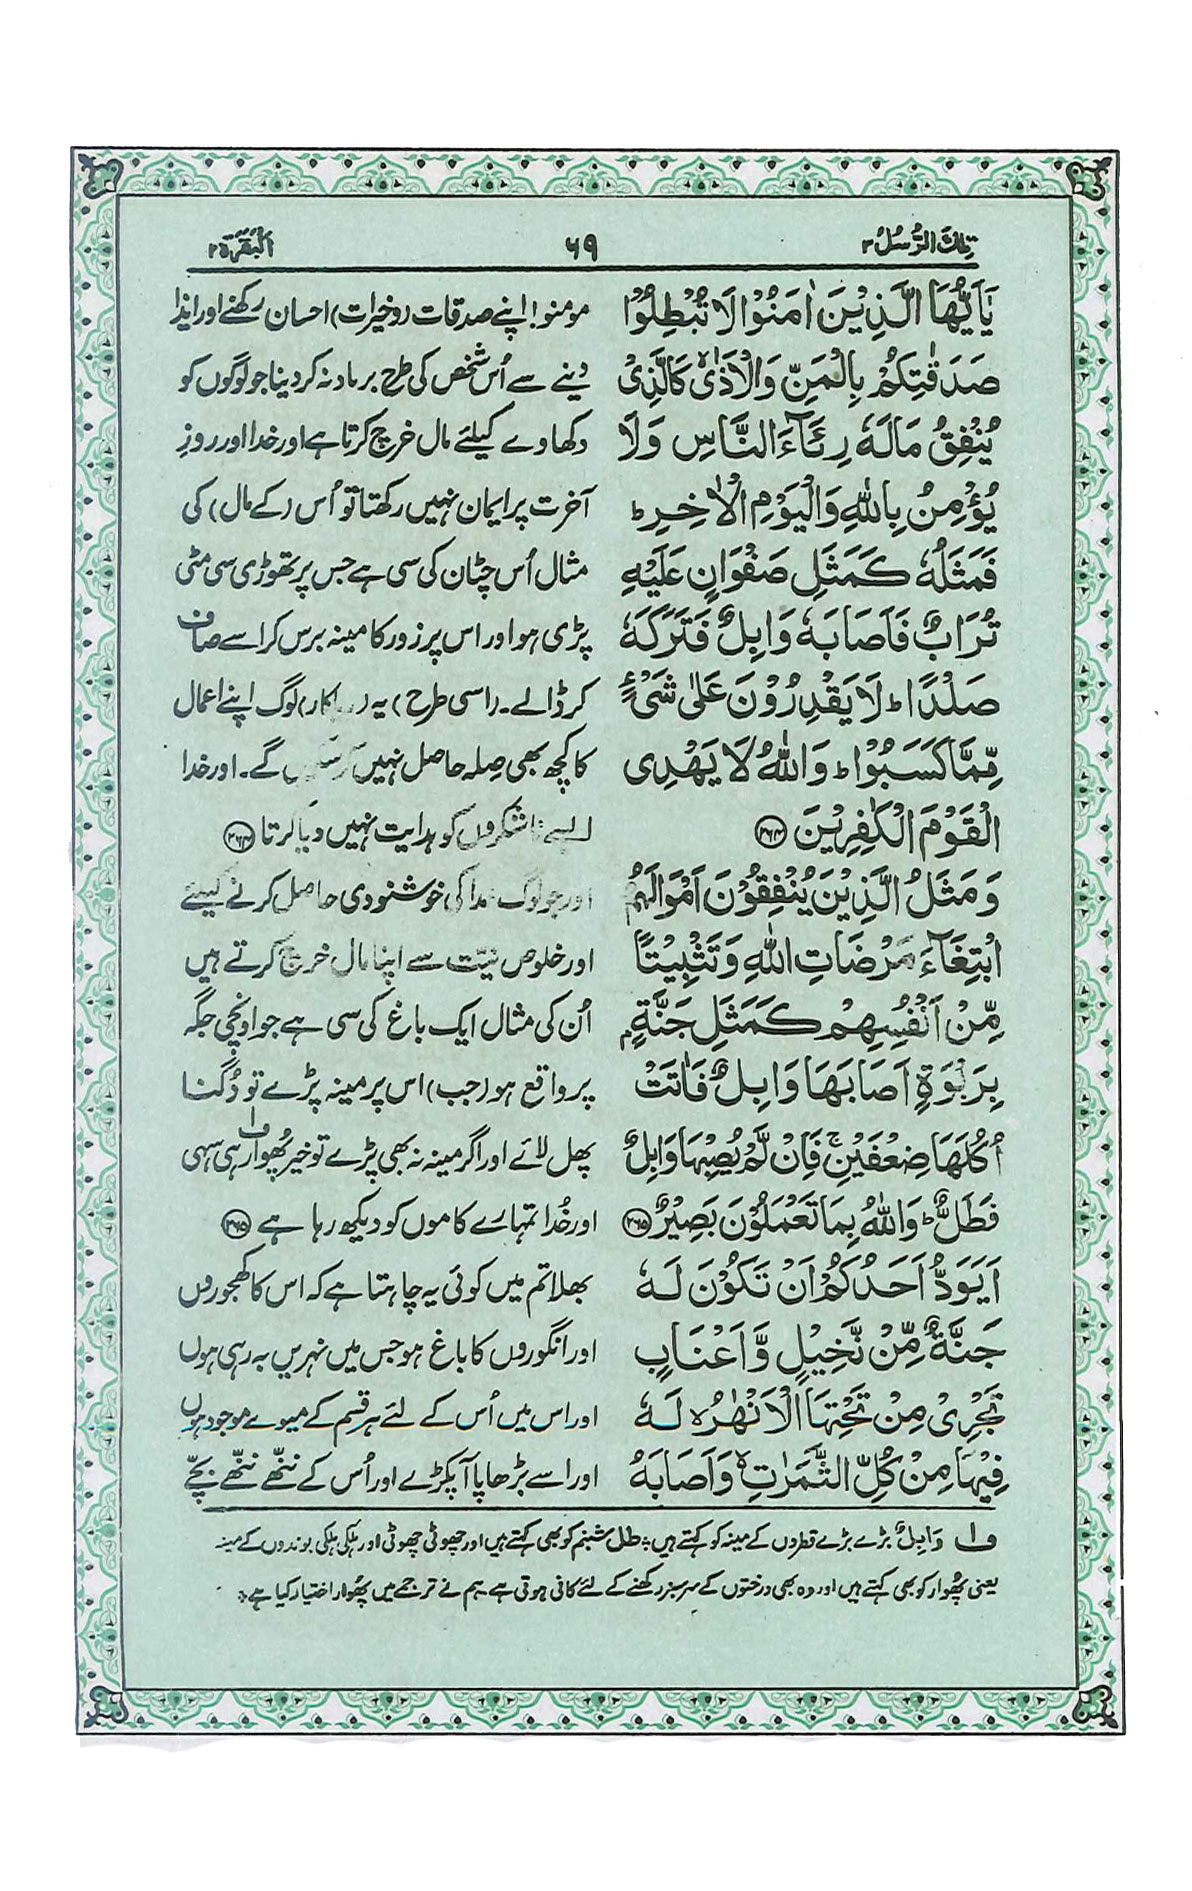 تِلْكَ الرُّسُلُ ۳
۶۹
اَلْبَقَرَة ۲
يٰٓاَيُّهَا الَّذِيْنَ اٰمَنُوْا لَا تُبْطِلُوْا
صَدَقٰتِكُمْ بِالْمَنِّ وَالْاَذٰىۙ كَالَّذِيْ
يُنْفِقُ مَالَهٗ رِئَآءَ النَّاسِ وَلَا
يُؤْمِنُ بِاللّٰهِ وَالْيَوْمِ الْاٰخِرِؕ
فَمَثَلُهٗ كَمَثَلِ صَفْوَانٍ عَلَيْهِ
تُرَابٌ فَاَصَابَهٗ وَابِلٌ فَتَرَكَهٗ
صَلْدًاؕ لَا يَقْدِرُوْنَ عَلٰى شَيْءٍ
مِّمَّا كَسَبُوْاؕ وَاللّٰهُ لَا يَهْدِى
الْقَوْمَ الْكٰفِرِيْنَ ۝۲۶۴
وَمَثَلُ الَّذِيْنَ يُنْفِقُوْنَ اَمْوَالَهُمُ
ابْتِغَآءَ مَرْضَاتِ اللّٰهِ وَتَثْبِيْتًا
مِّنْ اَنْفُسِهِمْ كَمَثَلِ جَنَّةٍۭ
بِرَبْوَةٍ اَصَابَهَا وَابِلٌ فَاٰتَتْ
اُكُلَهَا ضِعْفَيْنِۚ فَاِنْ لَّمْ يُصِبْهَا وَابِلٌ
فَطَلٌّؕ وَاللّٰهُ بِمَا تَعْمَلُوْنَ بَصِيْرٌ ۝۲۶۵
اَيَوَدُّ اَحَدُكُمْ اَنْ تَكُوْنَ لَهٗ
جَنَّةٌ مِّنْ نَّخِيْلٍ وَّاَعْنَابٍ
تَجْرِيْ مِنْ تَحْتِهَا الْاَنْهٰرُۙ لَهٗ
فِيْهَا مِنْ كُلِّ الثَّمَرٰتِۙ وَاَصَابَهُ
مومنو! اپنے صدقات (وخیرات) احسان رکھنے اور ایذا
دینے سے اُس شخص کی طرح برباد نہ کر دینا جو لوگوں کو
دکھاوے کیلئے مال خرچ کرتا ہے اور خدا اور روزِ
آخرت پر ایمان نہیں رکھتا تو اُس (کے مال) کی
مثال اُس چٹان کی سی ہے جس پر تھوڑی سی مٹی
پڑی ہو اور اس پر زور کا مینہ برس کر اسے صاف
کر ڈالے۔ (اسی طرح) یہ (ریاکار) لوگ اپنے اعمال
کا کچھ بھی صِلہ حاصل نہیں کر سکیں گے۔ اور خدا
ایسے ناشکروں کو ہدایت نہیں دیا کرتا ۝۲۶۴
اور جو لوگ خدا کی خوشنودی حاصل کرنے کیلئے
اور خلوص نیّت سے اپنا مال خرچ کرتے ہیں
اُن کی مثال ایک باغ کی سی ہے جو اونچی جگہ
پر واقع ہو (جب) اس پر مینہ پڑے تو دُگنا
پھل لائے اور اگر مینہ نہ بھی پڑے تو خیر پُھوار ف۱ ہی سہی
اور خُدا تمہارے کاموں کو دیکھ رہا ہے ۝۲۶۵
بھلا تم میں کوئی یہ چاہتا ہے کہ اس کا کھجوروں
اور انگوروں کا باغ ہو جس میں نہریں بہ رہی ہوں
اور اس میں اُس کے لئے ہر قسم کے میوے موجود ہوں
اور اسے بڑھاپا آپکڑے اور اُس کے ننّھے ننّھے بچّے
ف۱ وَابِلٌ بڑے بڑے قطروں کے مینہ کو کہتے ہیں؛ طل شبنم کو بھی کہتے ہیں اور چھوٹی چھوٹی اور ہلکی ہلکی بوندوں کے مینہ
یعنی پُھوار کو بھی کہتے ہیں اور وہ بھی درختوں کے سرسبز رکھنے کے لئے کافی ہوتی ہے ہم نے ترجمے میں پُھوار اختیار کیا ہے ؛